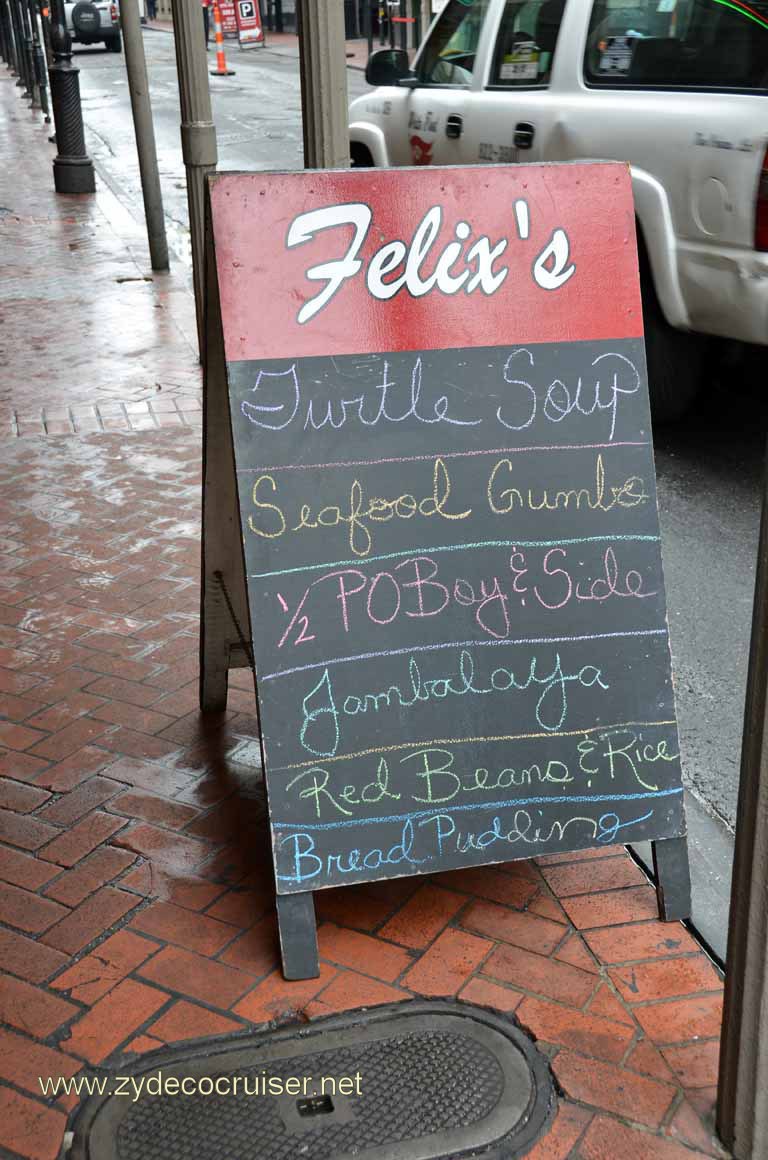 P
Felix's
Turtle Soup
Seafood Gumbo
1/2 POBoy & Side
Jambalaya
Red Beans & Rice
Bread Pudding
www.zydecocruiser.net